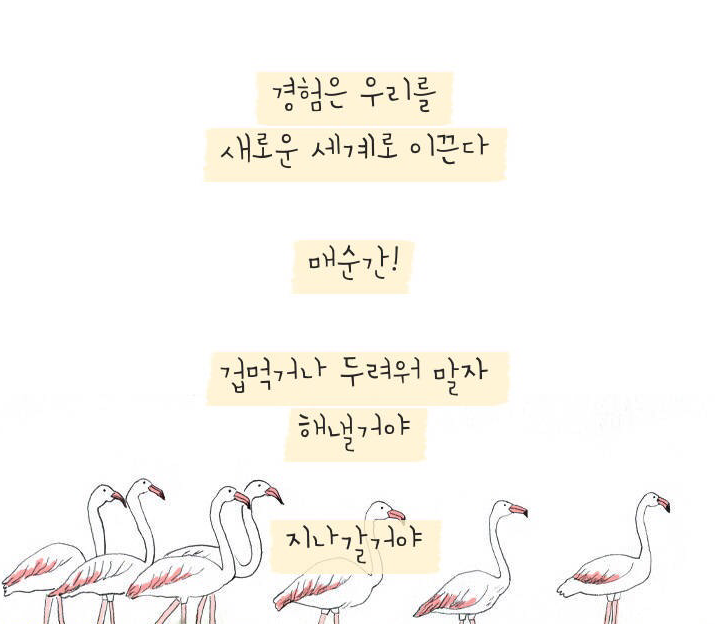 경험은 우리를
새로운 세계로 이끈다
매순간!
겁먹거나 두려워 말자
해낼거야
지나갈거야